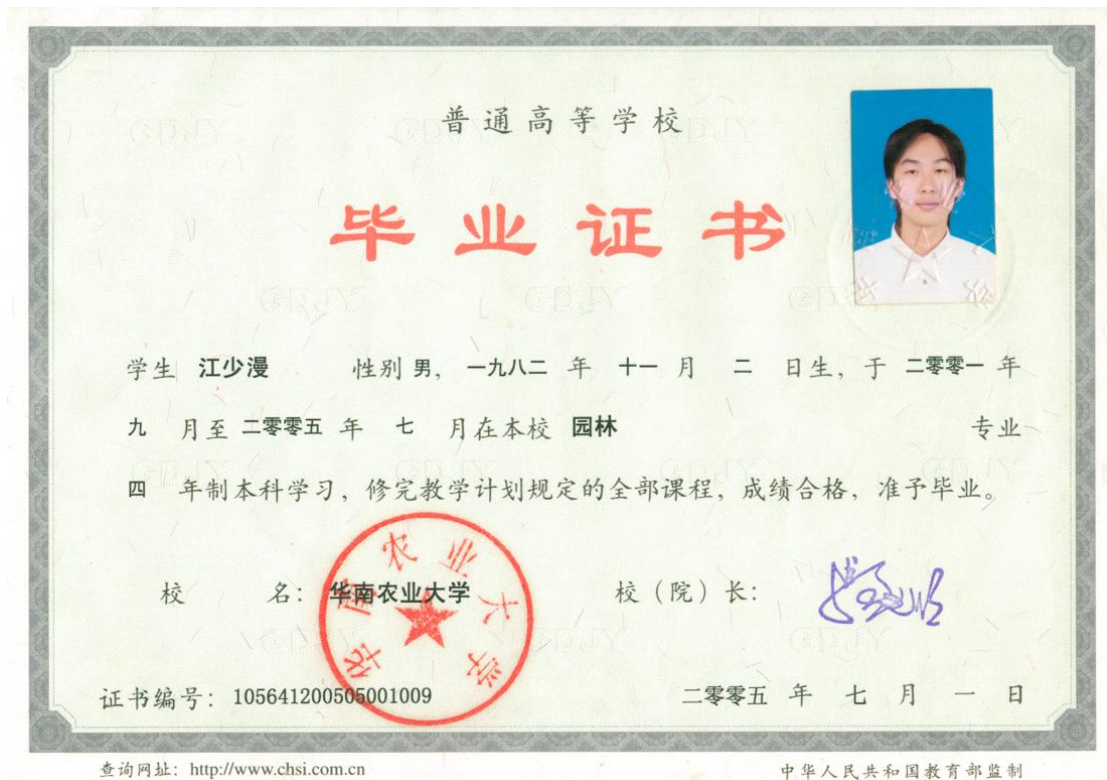 普通高等学校
毕业证书
学生 江少漫 性别 男， 一九八二 年 十一 月 二 日生，于 二零零一 年
九 月至 二零零五 年 七 月在本校 园林 专业
四 年制本科学习，修完教学计划规定的全部课程，成绩合格，准予毕业。
华南农业大学
校 名： 华南农业大学 校（院）长：
证书编号： 105641200505001009 二零零五 年 七 月 一 日
查询网址： http://www.chsi.com.cn 中华人民共和国教育部监制